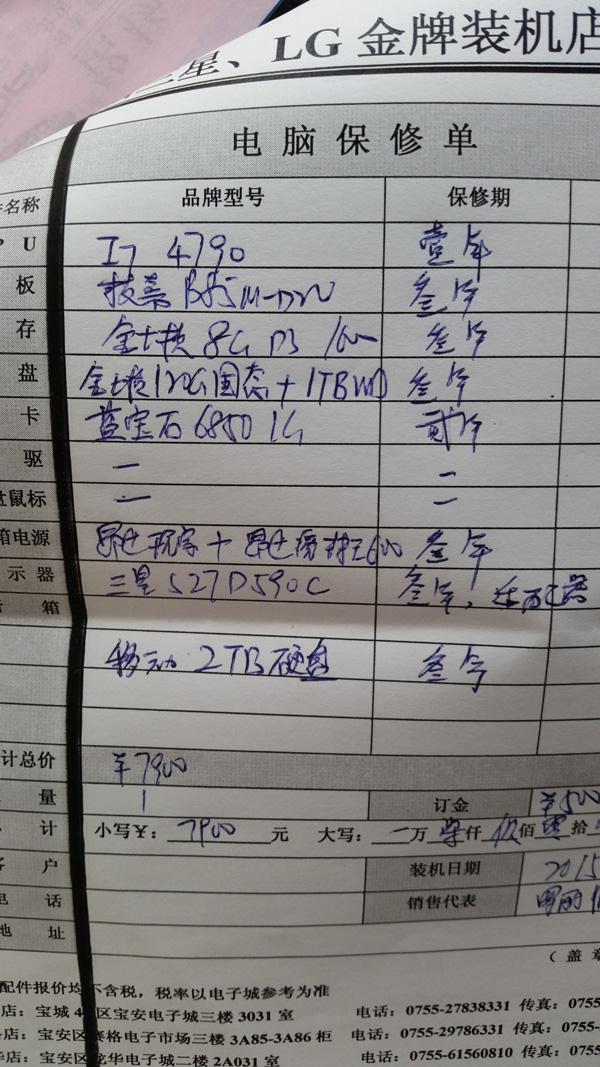 三星、LG 金牌装机店
电脑保修单
件名称 品牌型号 保修期
P U I7 4790 壹年
板 技嘉 B85M-D2V 叁年
存 金士顿 8G D3 1600 叁年
盘 金士顿120G固态+1TBWD 叁年
卡 蓝宝石 6850 1G 贰年
驱 — —
盘鼠标 — —
箱电源 叁年
示器 三星 S27D590C 叁年,
音 箱
移动 2TB 硬盘 叁年
计总价 ¥7900
量 1 订金 ¥500
计 小写¥: 7900 元 大写: 一万 柒仟 玖佰 零拾
客 户 装机日期 2015
电 话 销售代表
地 址
(盖章
配件报价均不含税,税率以电子城参考为准
店:宝城4 区宝安电子城三楼 3031 室 电话:0755-27838331 传真:0755
店:宝安区赛格电子市场三楼 3A85-3A86 柜 电话:0755-29786331 传真:0755-
华店:宝安区龙华电子城二楼 2A031 室 电话:0755-61560810 传真:0755